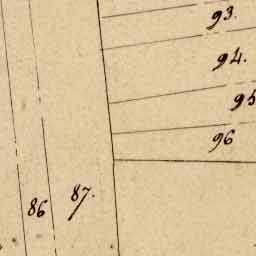 93.
94.
95
96
86
87.